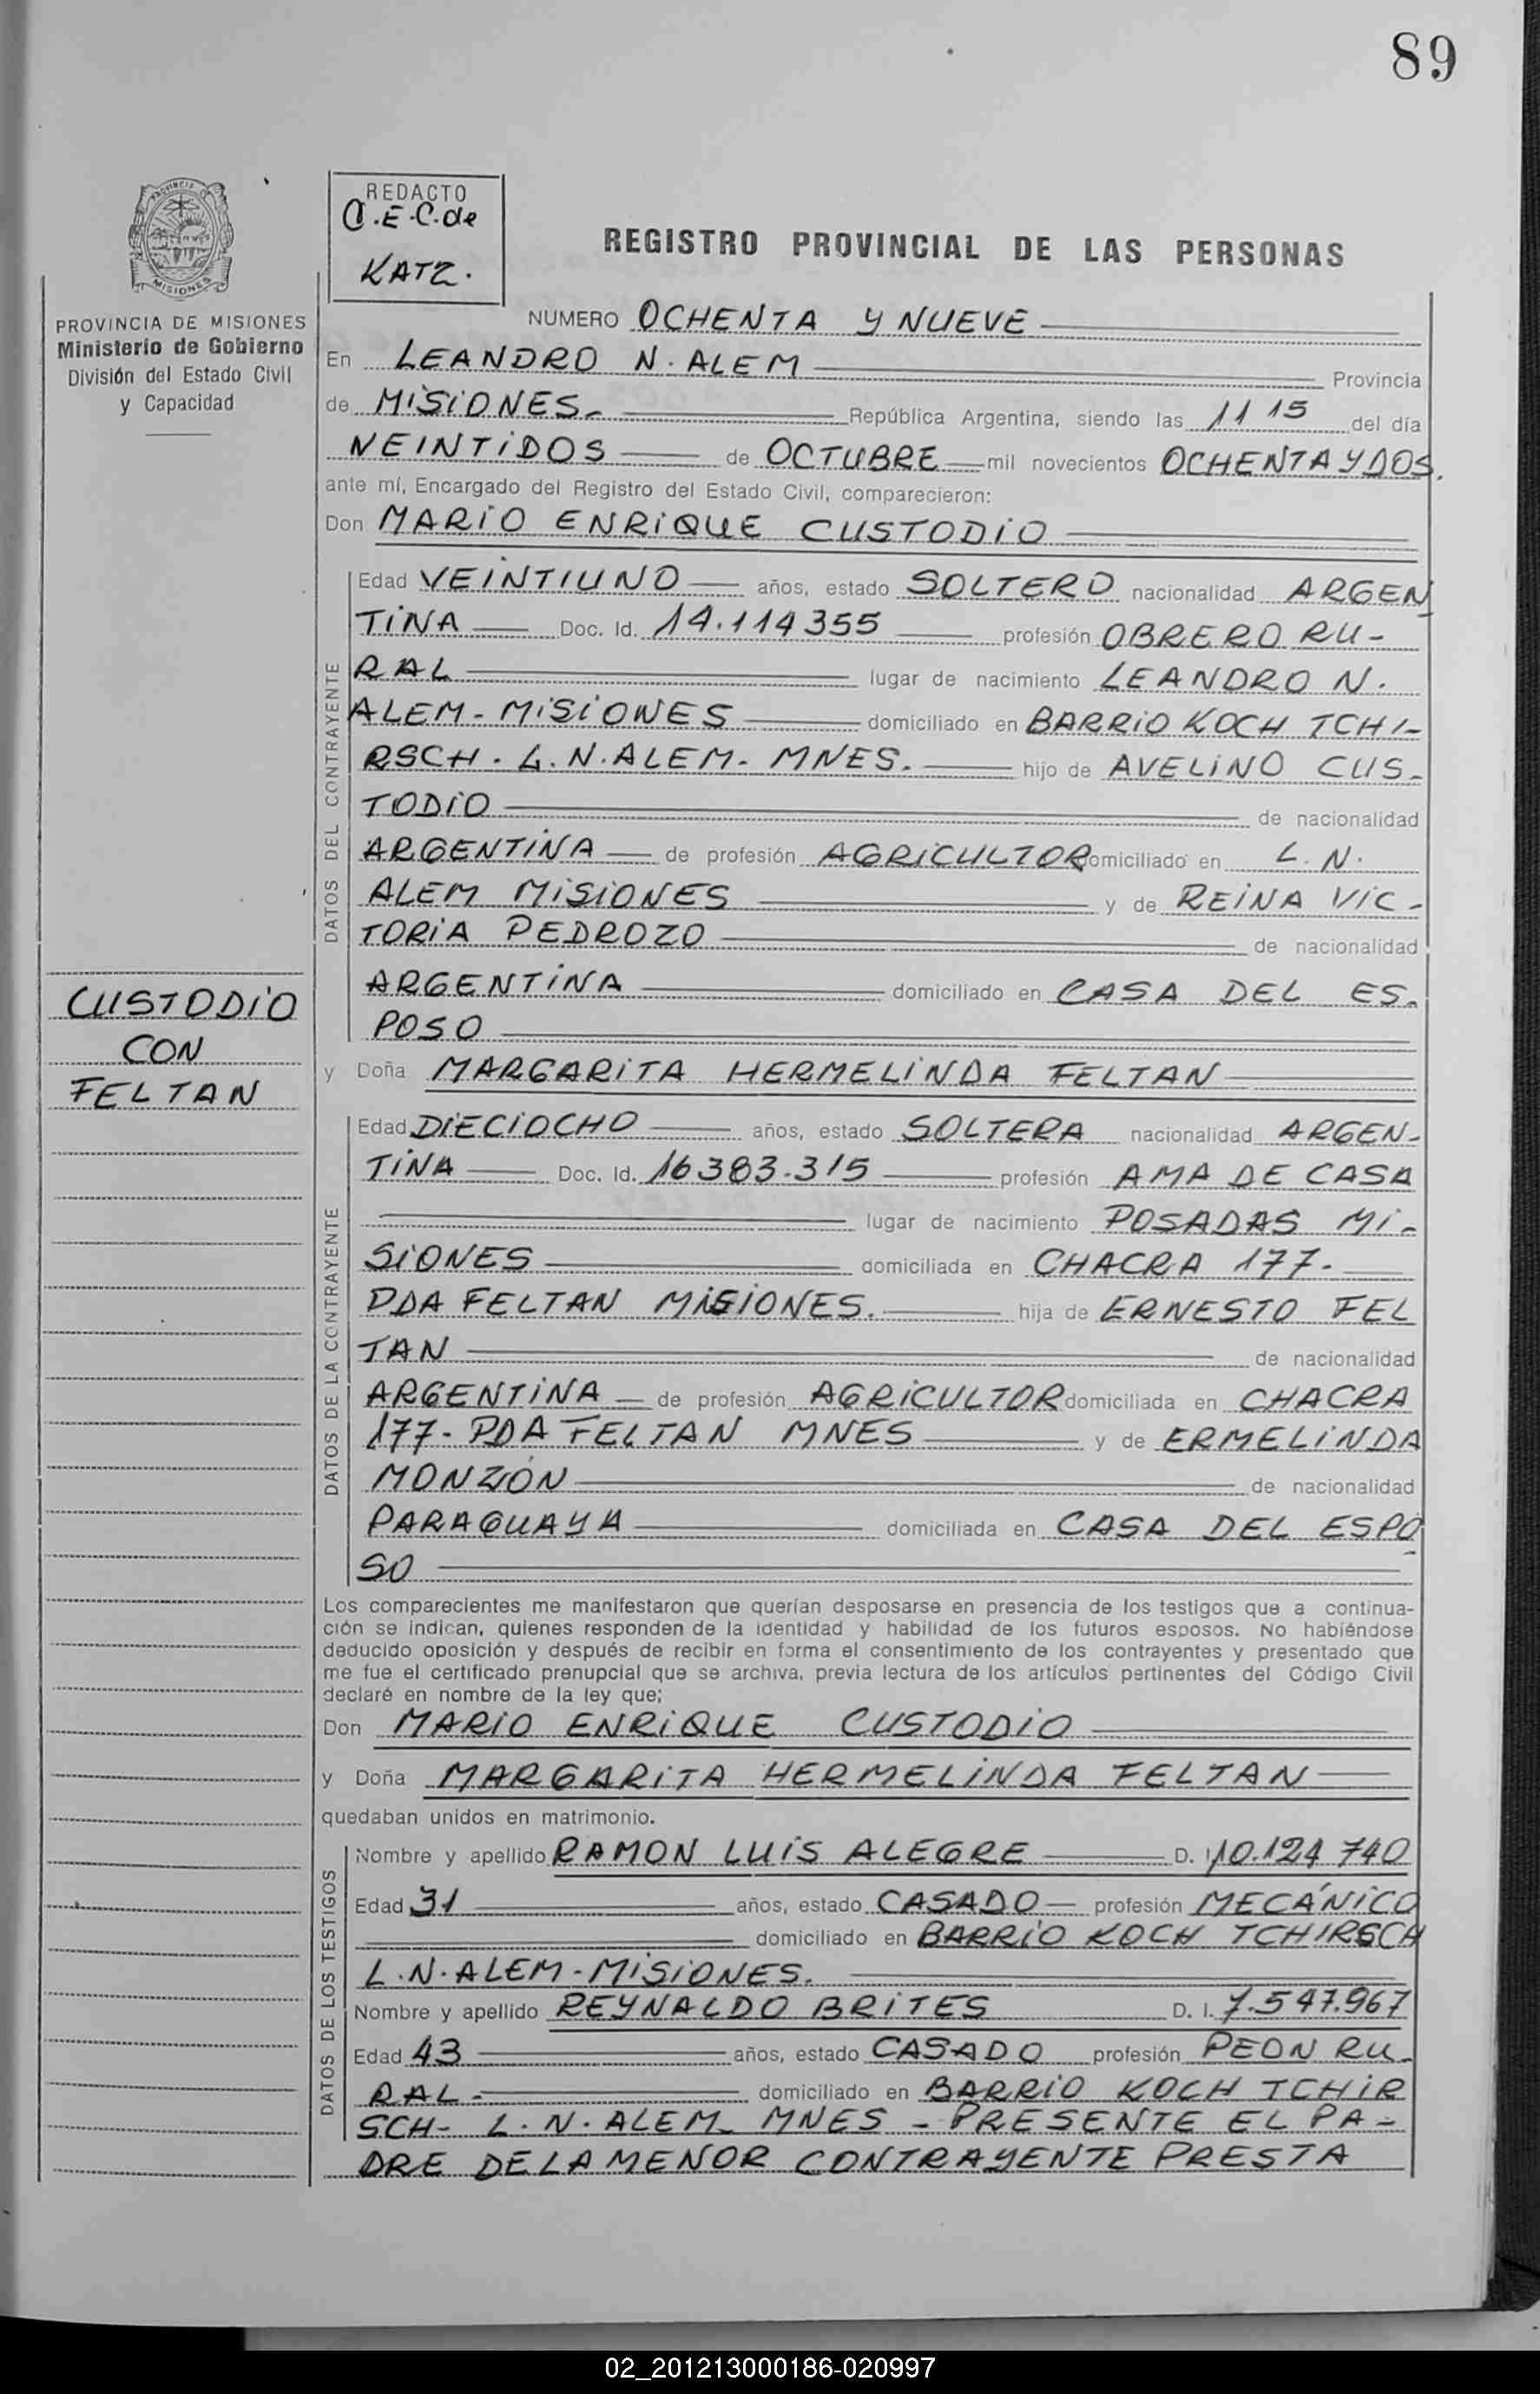 89
REDACTO
C.E.C.de
KATZ.
REGISTRO PROVINCIAL DE LAS PERSONAS
PROVINCIA DE MISIONES
Ministerio de Gobierno
División del Estado Civil
y Capacidad
NUMERO OCHENTA Y NUEVE
En LEANDRO N. ALEM Provincia
de MISIONES.- República Argentina, siendo las 11 15 del día
VEINTIDOS de OCTUBRE mil novecientos OCHENTA Y DOS.
ante mí, Encargado del Registro del Estado Civil, comparecieron:
Don MARIO ENRIQUE CUSTODIO
DATOS DEL CONTRAYENTE
Edad VEINTIUNO años, estado SOLTERO nacionalidad ARGEN
TINA Doc. Id. 14.114355 profesión OBRERO RU-
RAL lugar de nacimiento LEANDRO N.
ALEM - MISIONES domiciliado en BARRIO KOCH TCHI-
RSCH. L.N.ALEM- MNES. hijo de AVELINO CUS-
TODIO de nacionalidad
ARGENTINA de profesión AGRICULTOR domiciliado en L. N.
ALEM MISIONES y de REINA VIC-
TORIA PEDROZO de nacionalidad
ARGENTINA domiciliado en CASA DEL ES-
POSO
CUSTODIO
CON
FELTAN
y Doña MARGARITA HERMELINDA FELTAN
DATOS DE LA CONTRAYENTE
Edad DIECIOCHO años, estado SOLTERA nacionalidad ARGEN-
TINA Doc. Id. 16383.315 profesión AMA DE CASA
lugar de nacimiento POSADAS MI-
SIONES domiciliada en CHACRA 177.
PDA FELTAN MISIONES. hija de ERNESTO FEL
TAN de nacionalidad
ARGENTINA de profesión AGRICULTOR domiciliada en CHACRA
177- PDA FELTAN MNES y de ERMELINDA
MONZÓN de nacionalidad
PARAGUAYA domiciliada en CASA DEL ESPO-
SO
Los comparecientes me manifestaron que querían desposarse en presencia de los testigos que a continua-
ción se indican, quienes responden de la identidad y habilidad de los futuros esposos. No habiéndose
deducido oposición y después de recibir en forma el consentimiento de los contrayentes y presentado que
me fue el certificado prenupcial que se archiva, previa lectura de los artículos pertinentes del Código Civil
declaré en nombre de la ley que;
Don MARIO ENRIQUE CUSTODIO
y Doña MARGARITA HERMELINDA FELTAN
quedaban unidos en matrimonio.
DATOS DE LOS TESTIGOS
Nombre y apellido RAMON LUIS ALEGRE D. I. 10.124 740
Edad 31 años, estado CASADO profesión MECÁNICO
domiciliado en BARRIO KOCH TCHIRSCH
L.N.ALEM-MISIONES.
Nombre y apellido REYNALDO BRITES D. I. 7.547.967
Edad 43 años, estado CASADO profesión PEON RU-
RAL- domiciliado en BARRIO KOCH TCHIR
SCH- L.N.ALEM- MNES - PRESENTE EL PA-
DRE DE LA MENOR CONTRAYENTE PRESTA
02_201213000186-020997